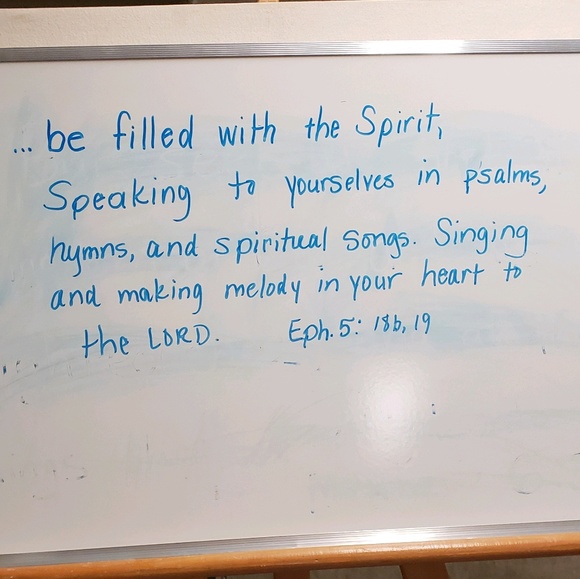 ... be filled with the Spirit,
Speaking to yourselves in psalms,
hymns, and spiritual songs. Singing
and making melody in your heart to
the LORD. Eph. 5: 18b, 19